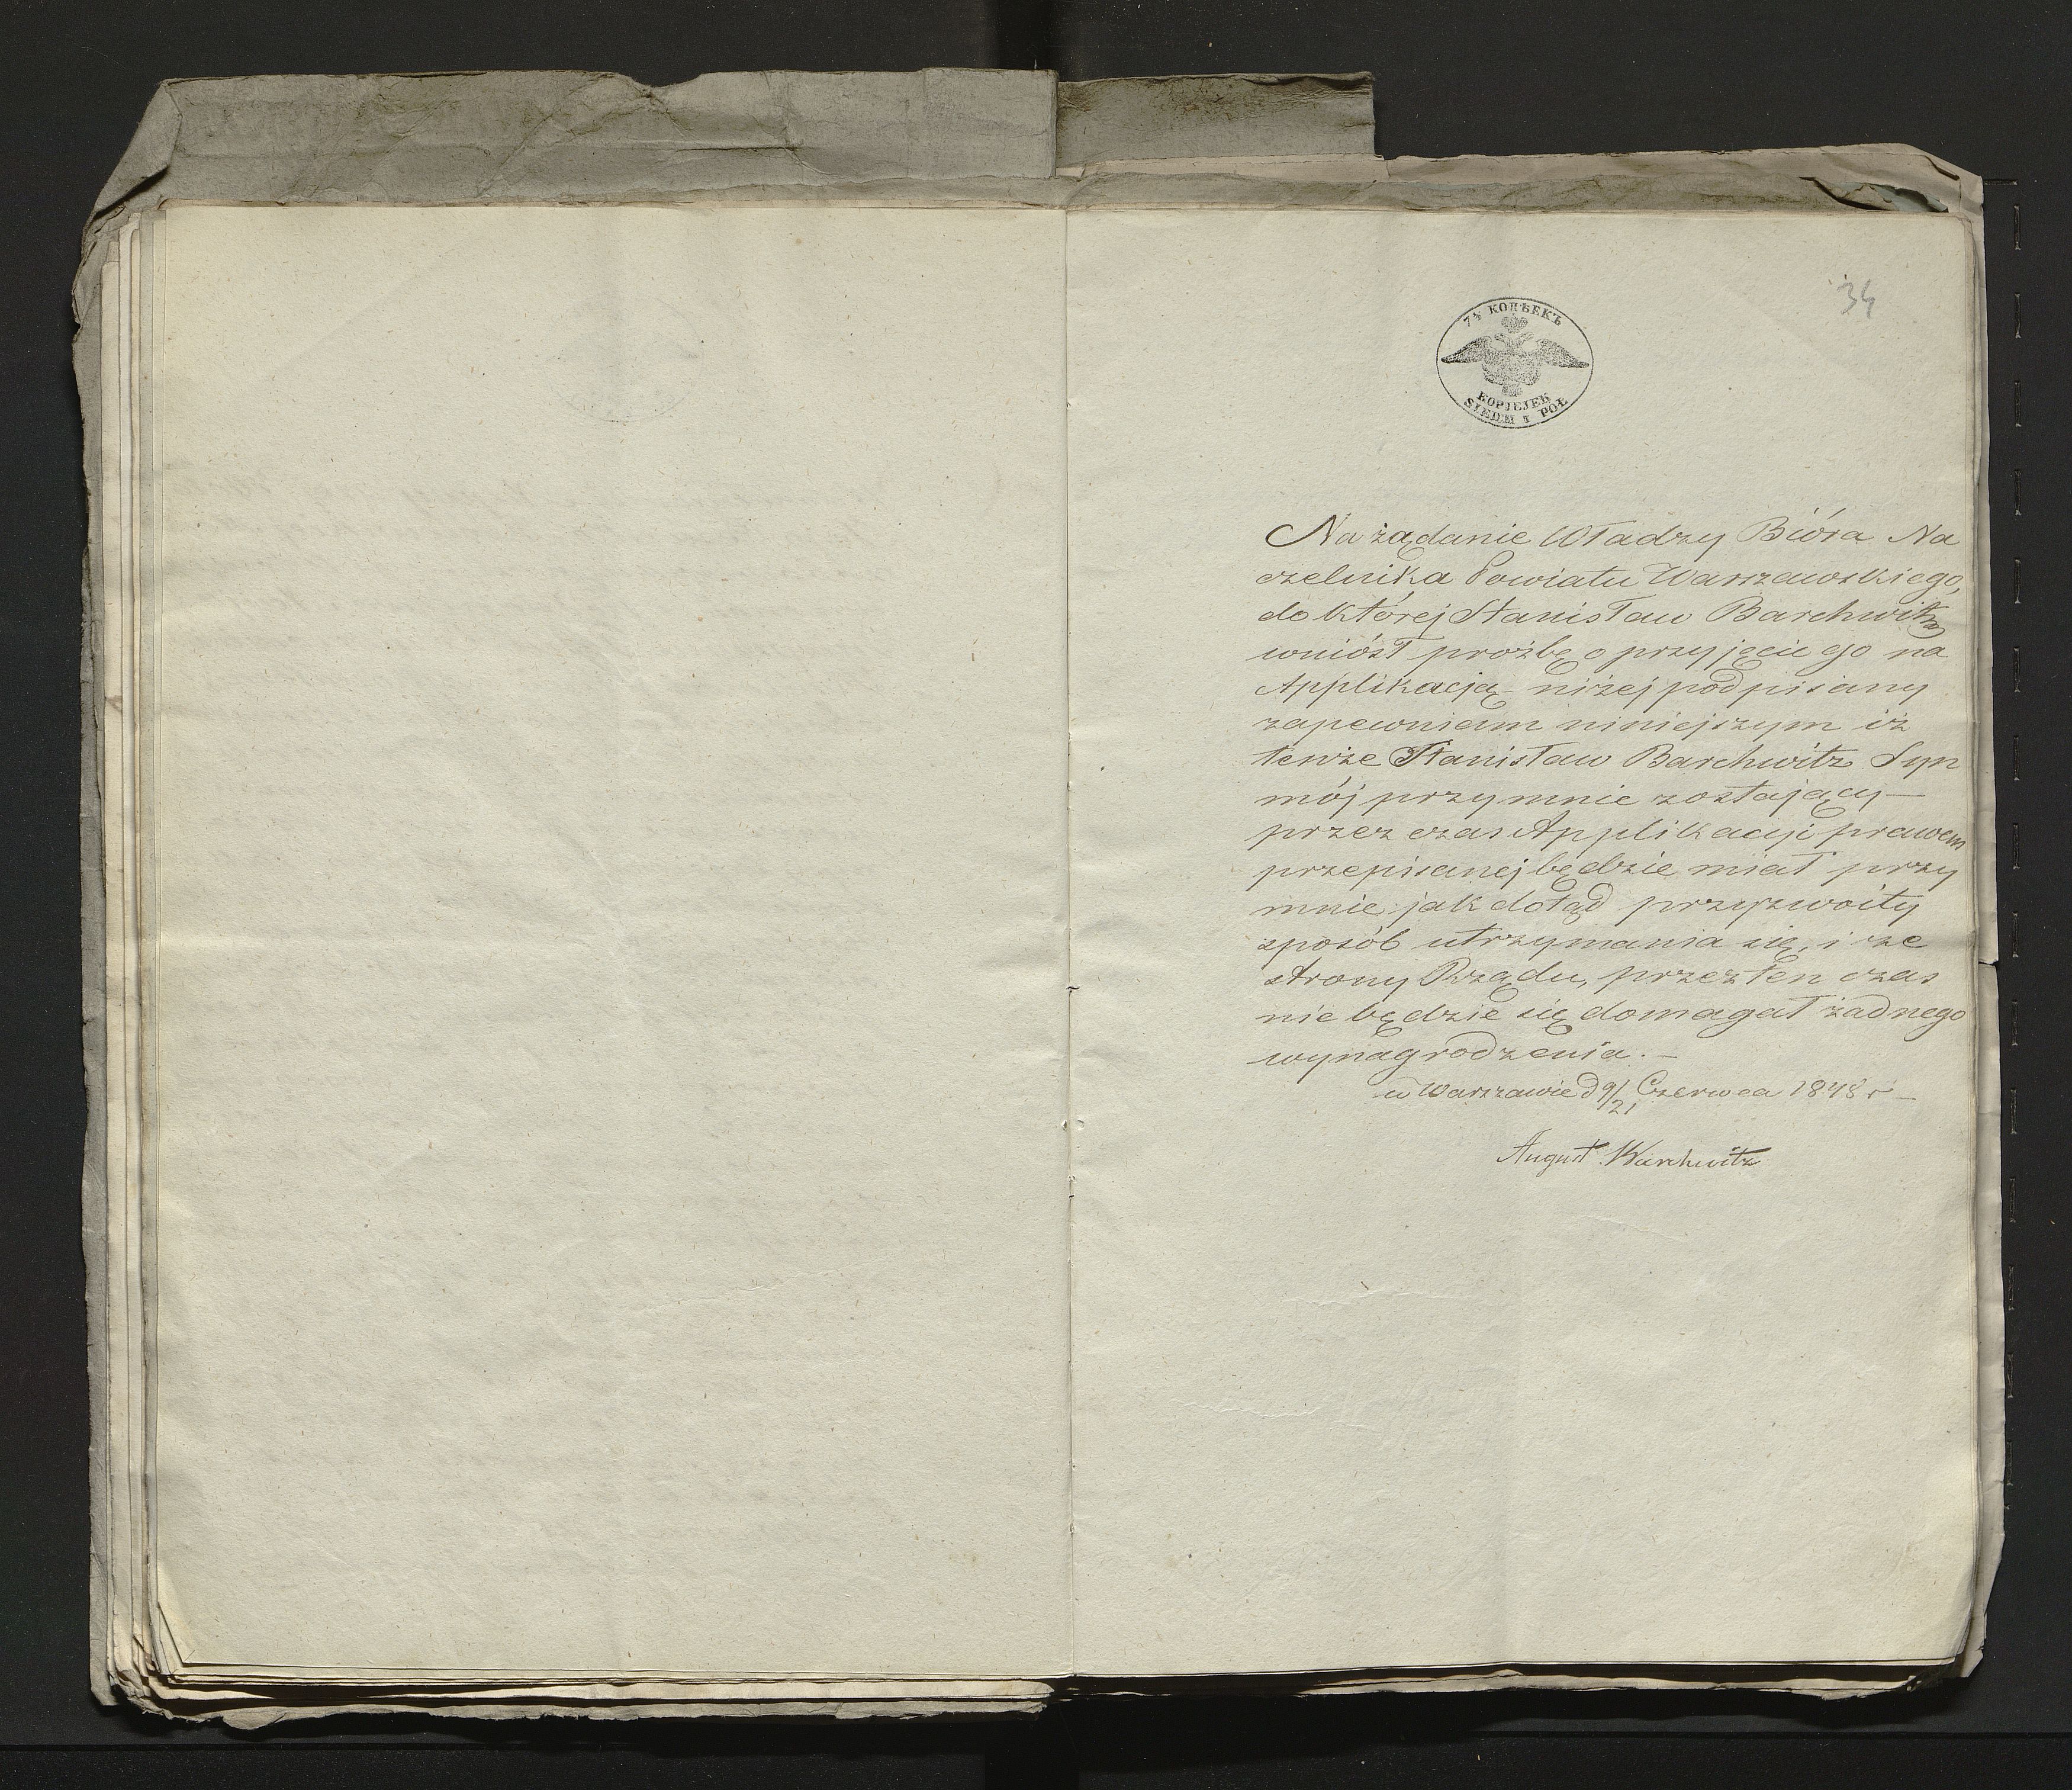 34
7½ КОПѢЕКЪ
KOPIEJEK
SIEDM I POŁ
Na żądanie Władzy Bióra Na
czelnika Powiatu Warszawskiego,
do której Stanisław Barchwitz
wniósł prożbę o przyjęcie go na
Applikacją – niżej podpisany
zapewniam niniejszym iż
tenże Stanisław Barchwitz Syn
mój przy mnie zostający –
przez czas Applikacji prawem
przepisanej będzie miał przy
mnie jak dotąd przyzwoity
sposób utrzymania się, i ze
strony Rządu, przez ten czas
nie będzie się domagał żadnego
wynagrodzenia. –
w Warszawie d 9/21 Czerwca 1848 r –
August Barchwitz